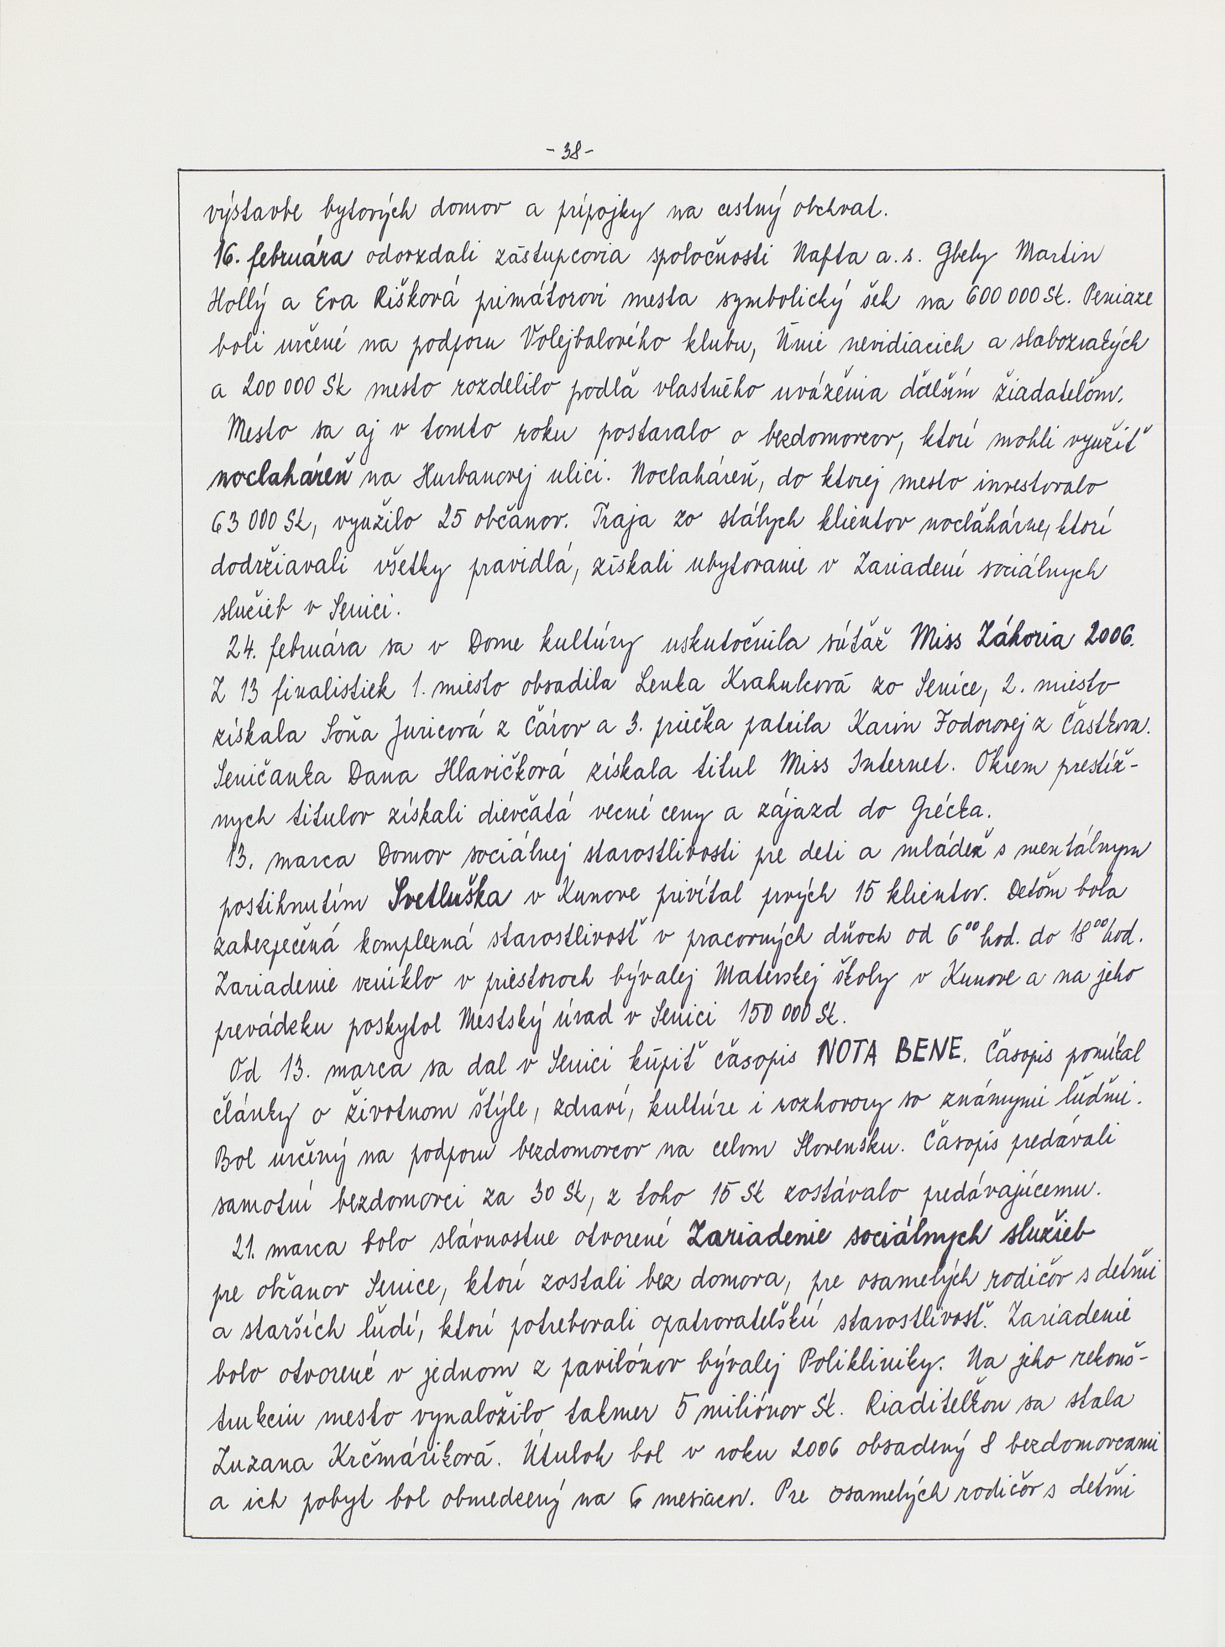 -38-
výstavbe bytových domov a prípojky na cestný obchvat.
16. februára odovzdali zástupcovia spoločnosti Nafta a.s. Gbely Martin
Hollý a Eva Rišková primátorovi mesta symbolický šek na 600 000 Sk. Peniaze
boli určené na podporu Volejbalového klubu, Únie nevidiacich a slabozrakých
a 200 000 Sk mesto rozdelilo podľa vlastného uváženia ďalším žiadateľom.
Mesto sa aj v tomto roku postaralo o bezdomovcov, ktorí mohli využiť
nocľaháreň na Hurbanovej ulici. Nocľaháreň, do ktorej mesto investovalo
63 000 Sk, využilo 25 občanov. Traja zo stálych klientov nocľahárne, ktorí
dodržiavali všetky pravidlá, získali ubytovanie v Zariadení sociálnych
služieb v Senici.
24. februára sa v Dome kultúry uskutočnila súťaž Miss Záhoria 2006.
Z 13 finalistiek 1. miesto obsadila Lenka Krahulcová zo Senice, 2. miesto
získala Soňa Juricová z Čárov a 3. priečka patrila Karin Fodorovej z Častkova.
Seničanka Dana Hlavičková získala titul Miss Internet. Okrem prestíž-
nych titulov získali dievčatá vecné ceny a zájazd do Grécka.
13. marca Domov sociálnej starostlivosti pre deti a mládež s mentálnym
postihnutím Svetluška v Kunove privítal prvých 15 klientov. Deťom bola
zabezpečená komplexná starostlivosť v pracovných dňoch od 6⁰⁰ hod. do 18⁰⁰ hod.
Zariadenie vzniklo v priestoroch bývalej Materskej školy v Kunove a na jeho
prevádzku poskytol Mestský úrad v Senici 150 000 Sk.
Od 13. marca sa dal v Senici kúpiť časopis NOTA BENE. Časopis ponúkal
články o životnom štýle, zdraví, kultúre i rozhovory so známymi ľuďmi.
Bol určený na podporu bezdomovcov na celom Slovensku. Časopis predávali
samotní bezdomovci za 30 Sk, z toho 15 Sk zostávalo predávajúcemu.
21. marca bolo slávnostne otvorené Zariadenie sociálnych služieb
pre občanov Senice, ktorí zostali bez domova, pre osamelých rodičov s deťmi
a starších ľudí, ktorí potrebovali opatrovateľskú starostlivosť. Zariadenie
bolo otvorené v jednom z pavilónov bývalej Polikliniky. Na jeho rekonš-
trukciu mesto vynaložilo takmer 5 miliónov Sk. Riaditeľkou sa stala
Zuzana Krčmáriková. Útulok bol v roku 2006 obsadený 8 bezdomovcami
a ich pobyt bol obmedzený na 6 mesiacov. Pre osamelých rodičov s deťmi